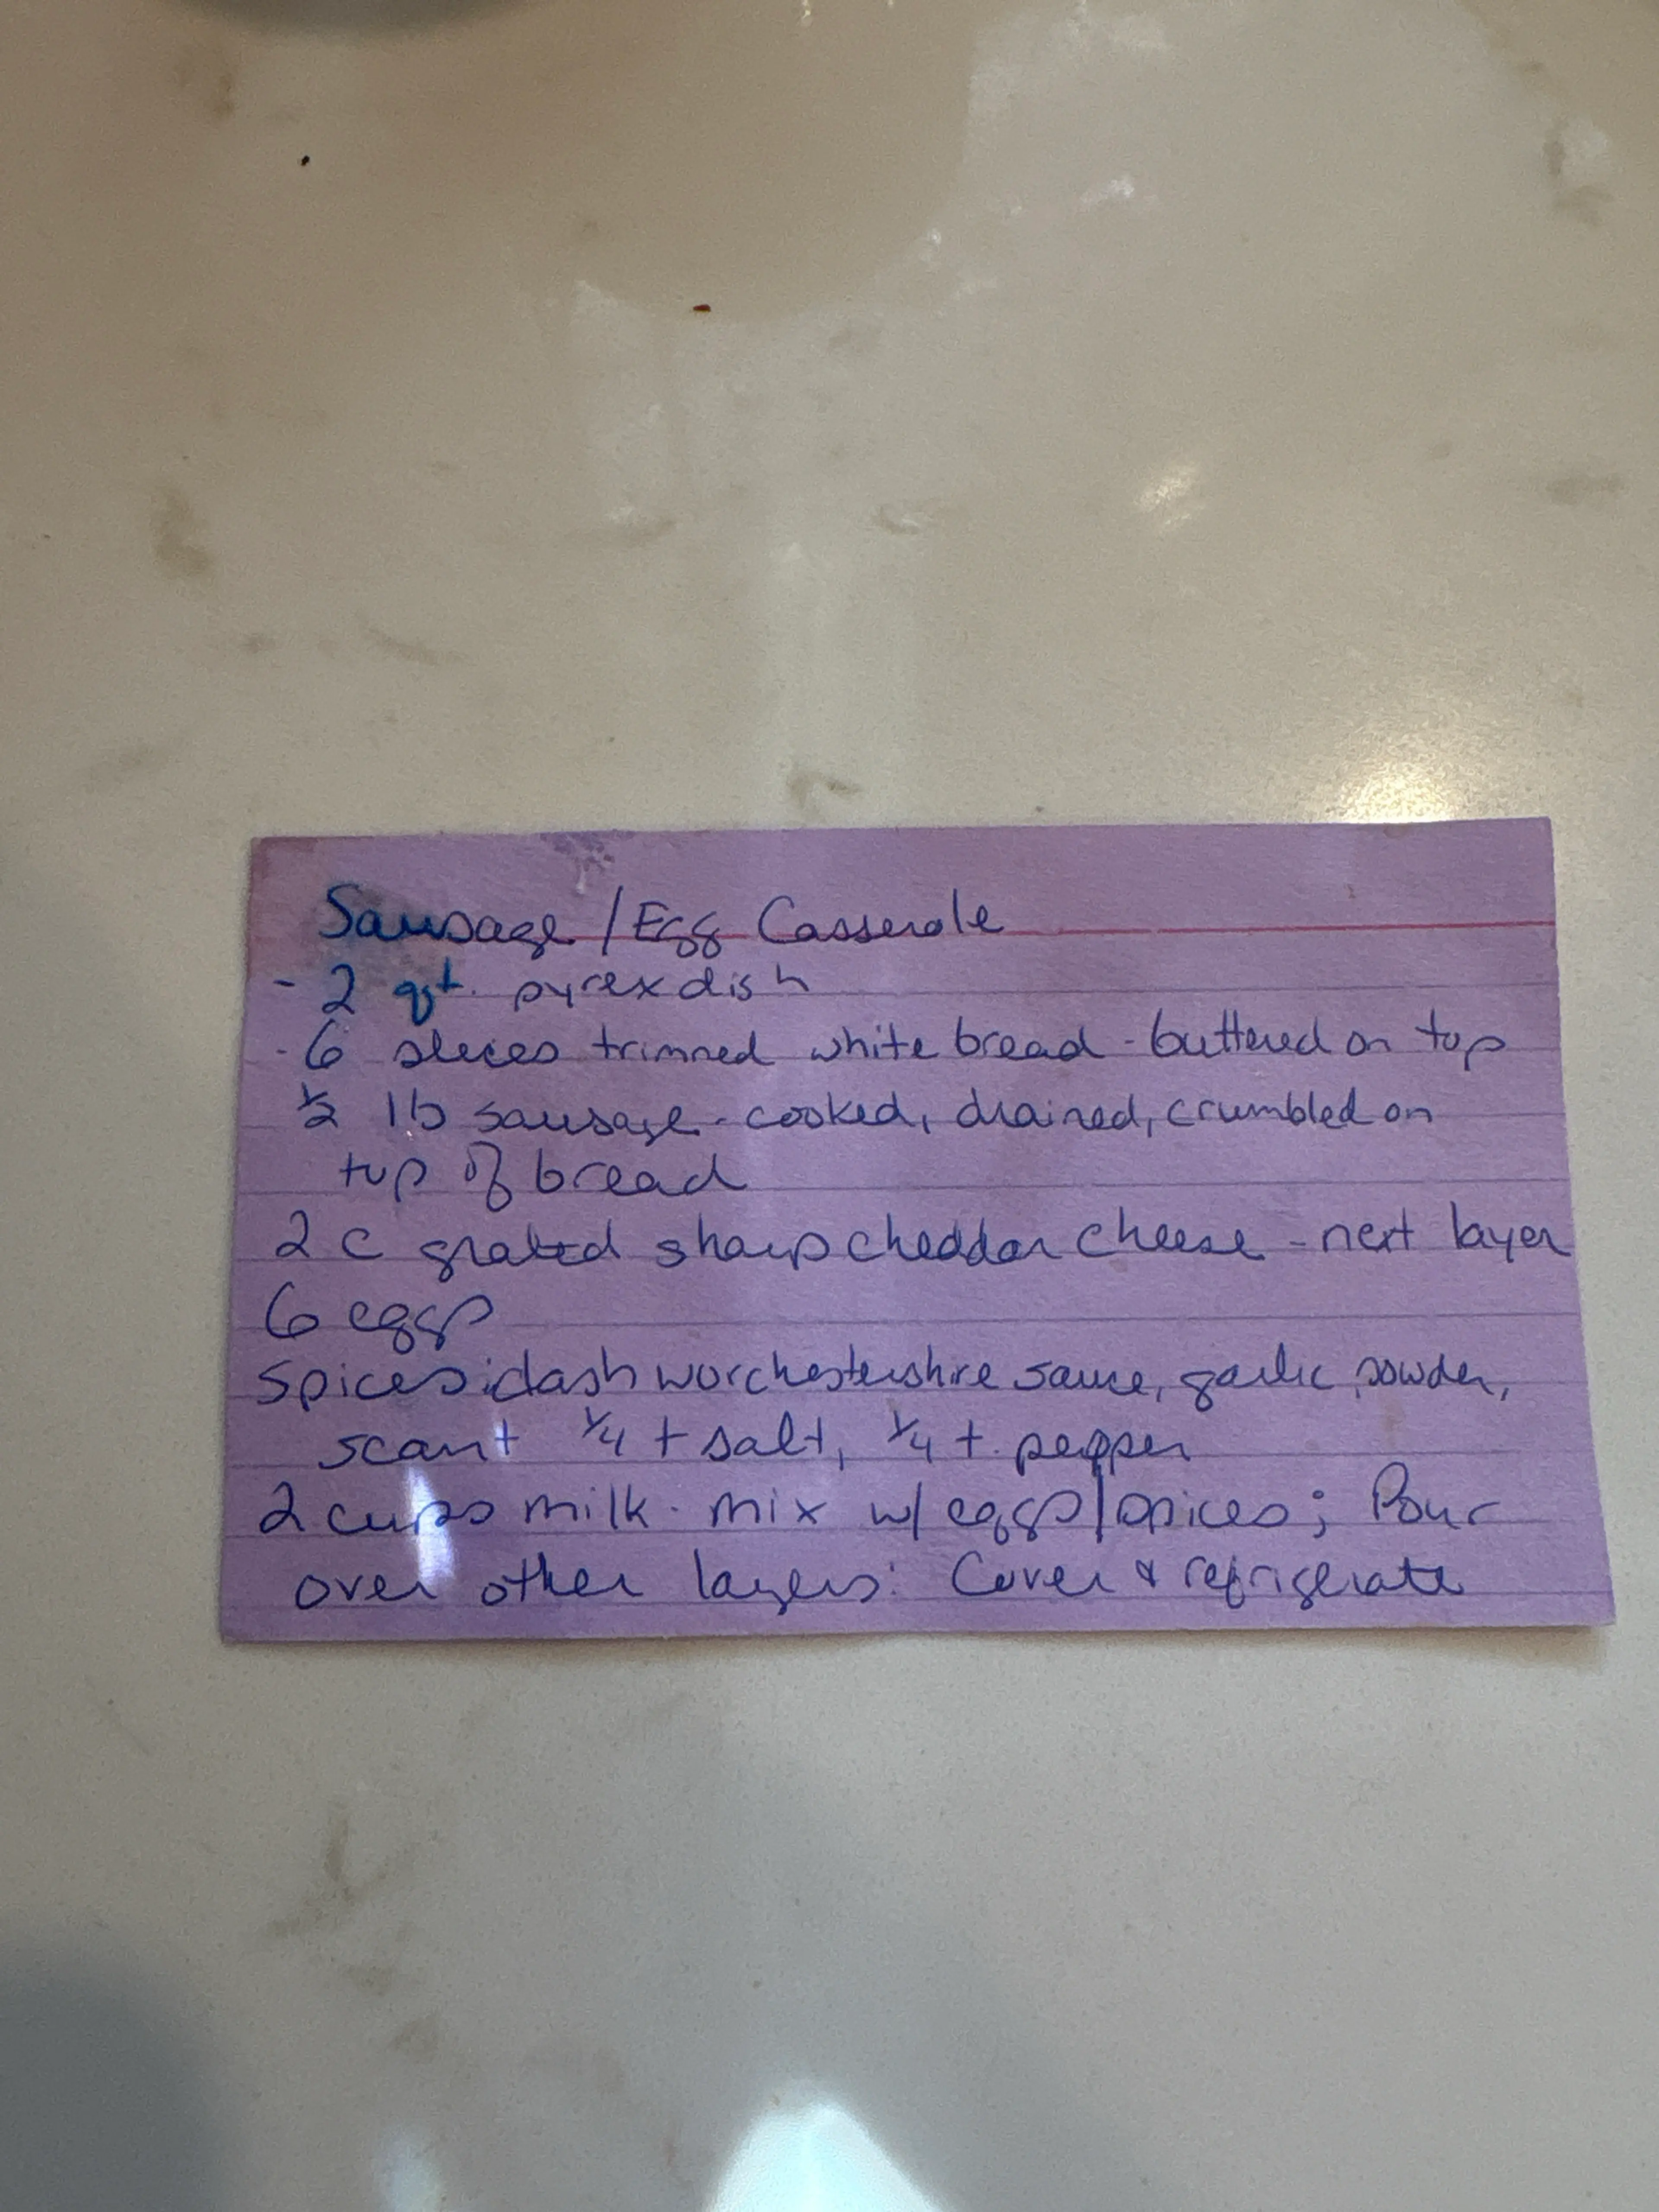 Sausage / Egg Casserole
- 2 qt. pyrex dish
- 6 slices trimmed white bread - buttered on top
1/2 lb sausage - cooked, drained, crumbled on
top of bread
2 c grated sharp cheddar cheese - next layer
6 eggs
Spices: dash worchestershire sauce, garlic powder,
scant 1/4 t salt, 1/4 t. pepper
2 cups milk - mix w/ eggs/spices; Pour
over other layers: Cover & refrigerate